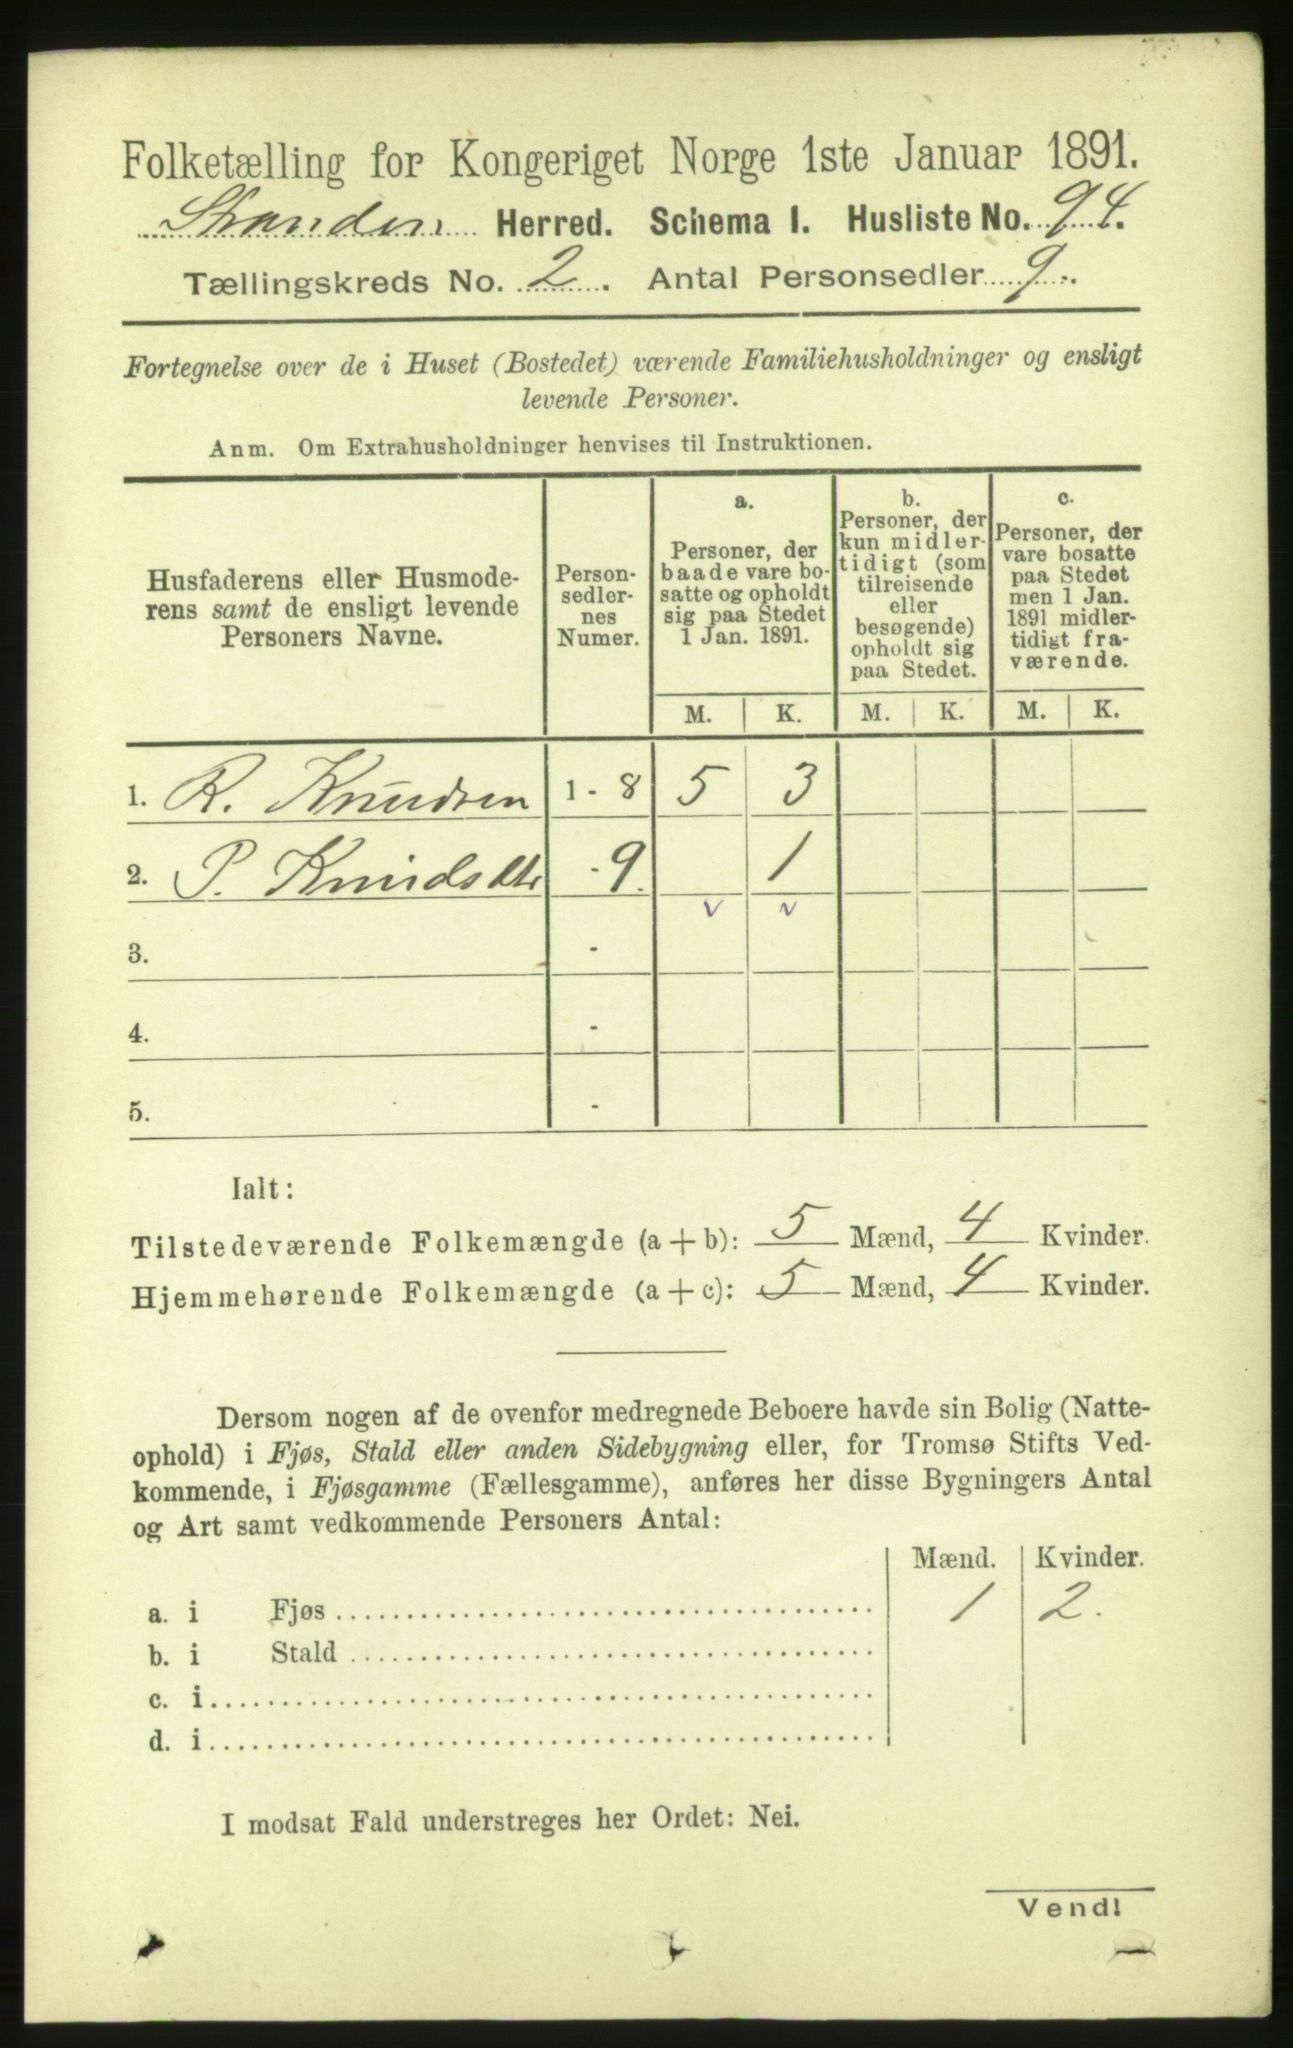 Folketælling for Kongeriget Norge 1ste Januar 1891.
Stranden Herred. Schema I. Husliste No. 94.
Tællingskreds No. 2. Antal Personsedler 9.
Fortegnelse over de i Huset (Bostedet) værende Familiehusholdninger og ensligt
levende Personer.
Anm. Om Extrahusholdninger henvises til Instruktionen.
Husfaderens eller Husmode-
rens samt de ensligt levende
Personers Navne.
Person-
sedler-
nes
Numer.
a.
Personer, der
baade vare bo-
satte og opholdt
sig paa Stedet
1 Jan. 1891.
b.
Personer, der
kun midler-
tidigt (som
tilreisende
eller
besøgende)
opholdt sig
paa Stedet.
c.
Personer, der
vare bosatte
paa Stedet
men 1 Jan.
1891 midler-
tidigt fra-
værende.
M. K. M. K. M. K.
1. R. Knudsen 1 - 8 5 3
2. P. Knudsdtr - 9. 1
3. -
4. -
5. -
Ialt:
Tilstedeværende Folkemængde (a + b): 5 Mænd, 4 Kvinder.
Hjemmehørende Folkemængde (a + c): 5 Mænd, 4 Kvinder.
Dersom nogen af de ovenfor medregnede Beboere havde sin Bolig (Natte-
ophold) i Fjøs, Stald eller anden Sidebygning eller, for Tromsø Stifts Ved-
kommende, i Fjøsgamme (Fællesgamme), anføres her disse Bygningers Antal
og Art samt vedkommende Personers Antal:
Mænd. Kvinder.
a. i Fjøs 1 2.
b. i Stald
c. i
d. i
I modsat Fald understreges her Ordet: Nei.
Vend!